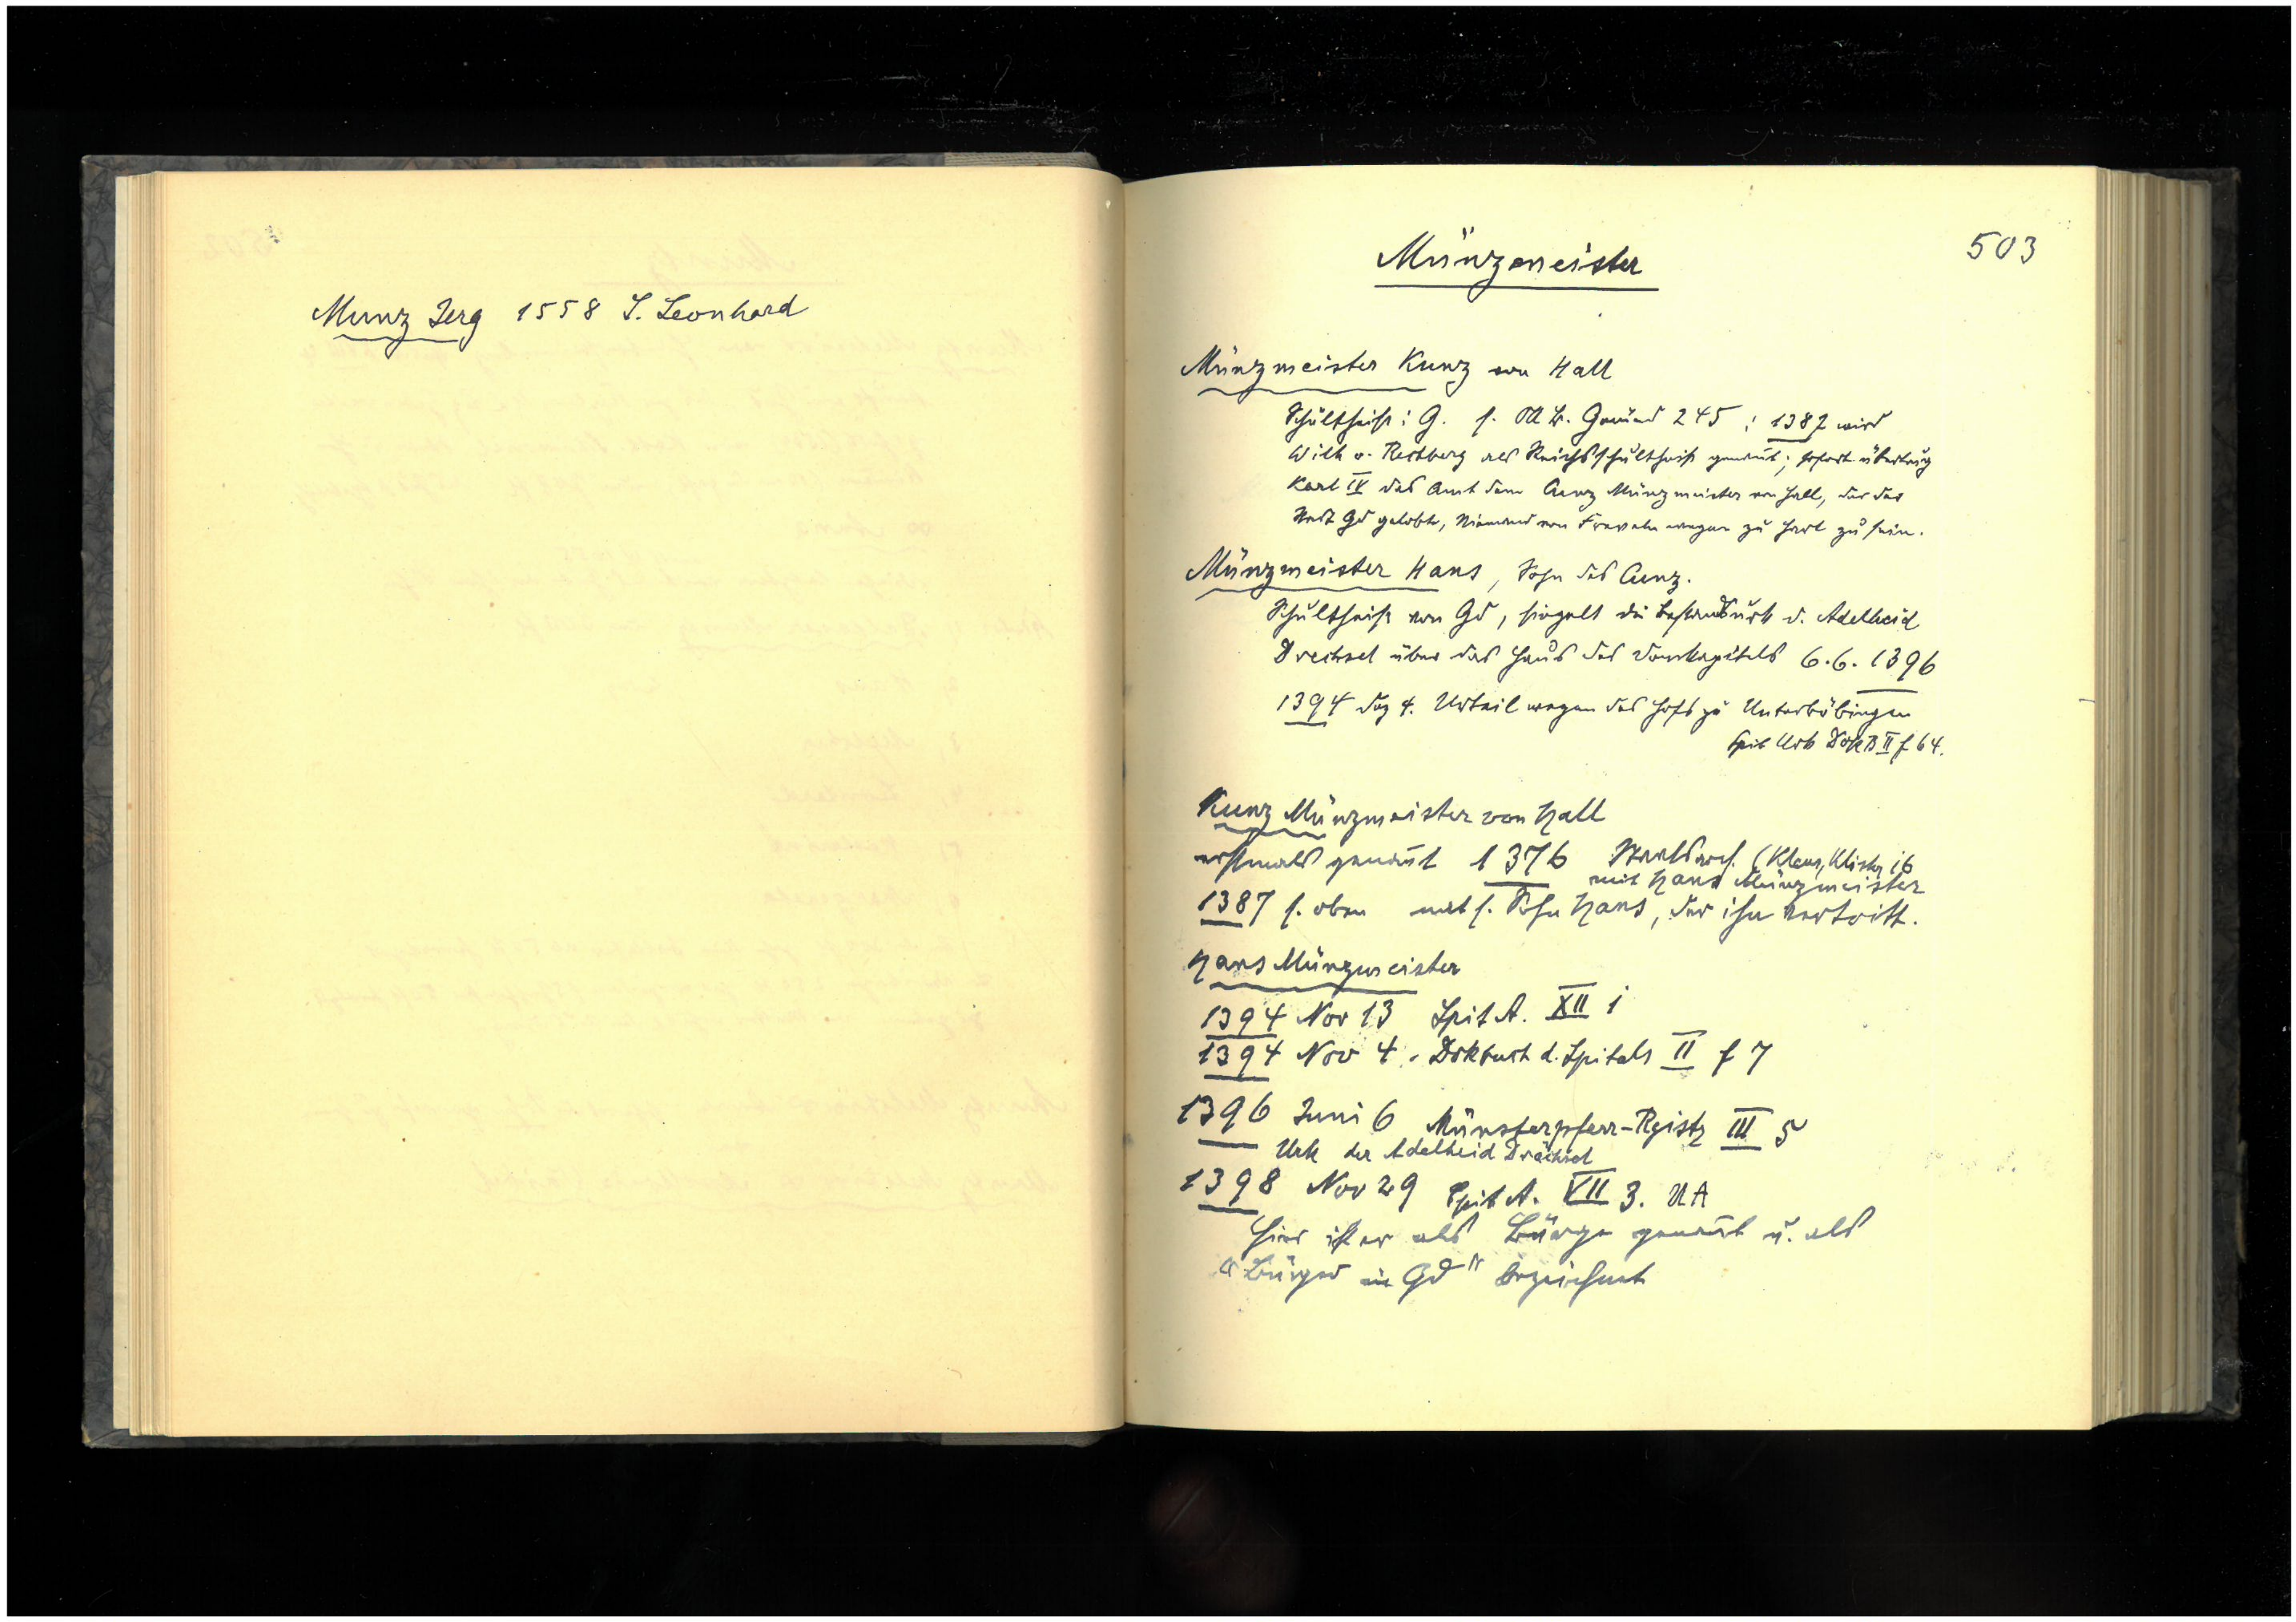 Munz Jerg 1558 S. Leonhard
503
Münzmeister
Münzmeister Kunz von Hall
Schultheiß i G. s. OAB. Gmünd 245; 1387 wird
Wilh v. Rechberg als Reichsschultheiß genannt; sofort übertrug
Karl IV das Amt dem Cunz Münzmeister von Hall, der der
Stadt Gd gelobte, Niemand von Freveln wegen zu hart zu sein.
Münzmeister Hans, Sohn des Cunz.
Schultheiß von Gd, siegelt die d. Adelheid
Drechsel über das Haus des Domkapitels 6.6.1396
1394 Urteil wegen des Hofs zu Unterböbingen
Spit Urk DokB II f 64.
Kunz Münzmeister von Hall
erstmals genannt 1376 Staatsarch. (Klaus, Klöster 16
mit Hans Münzmeister
1387 s. oben mit s. Sohn Hans, der ihn vertritt.
Hans Münzmeister
1394 Nov 13 Spit A. XII 1
1394 Nov 4. Dokbuch d. Spitals II f 7
1396 Juni 6 Münsterpfarr-Regist III 5
Urk der Adelheid Drächsel
1398 Nov 29 Spit A. VII 3. UA
Hier ist er als Bürge genannt u. als
"Bürger in Gd" bezeichnet